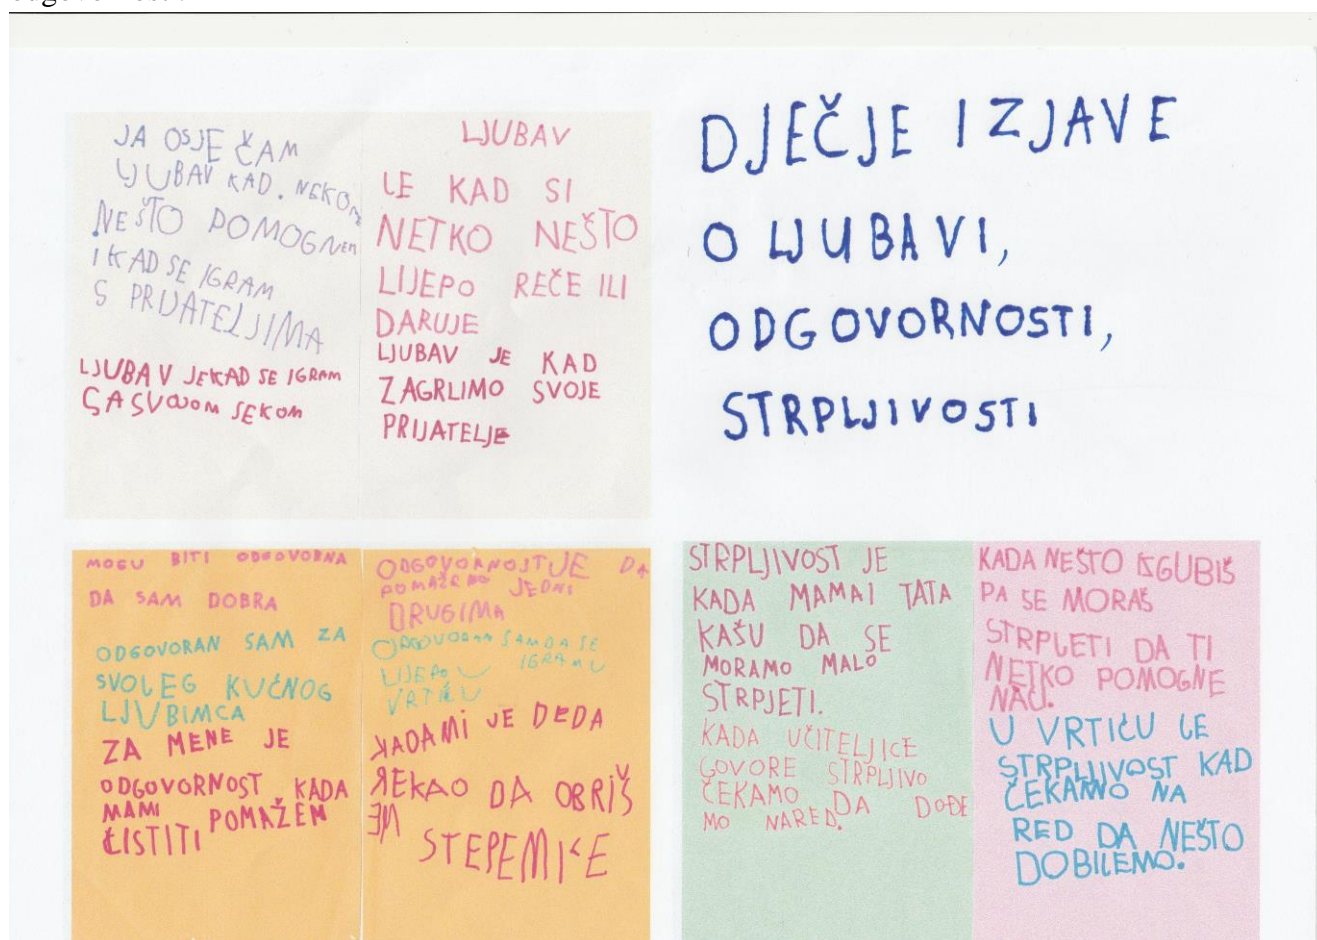 JA OSJEČAM
LJUBAV KAD. NEKOM
NEŠTO POMOGNEM
I KAD SE IGRAM
S PRIJATELJIMA
LJUBAV JE KAD SE IGRAM
SA SVOJOM SEKOM
LJUBAV
LE KAD SI
NETKO NEŠTO
LIJEPO REČE ILI
DARUJE
LJUBAV JE KAD
ZAGRLIMO SVOJE
PRIJATELJE
DJEČJE IZJAVE
O LJUBAVI,
ODGOVORNOSTI,
STRPLJIVOSTI
MOGU BITI ODGOVORNA
DA SAM DOBRA
ODGOVORAN SAM ZA
SVOLEG KUĆNOG
LJUBIMCA
ZA MENE JE
ODGOVORNOST KADA
MAMI POMAŽEM
ČISTITI
ODGOVORNOST JE DA
POMAŽEMO JEDNI
DRUGIMA
ODGOVORAN SAM DA SE
LIJEPO IGRAM U
VRTIĆU
KADA MI JE DEDA
REKAO DA OBRIŠ
EM
STEPENICE
STRPLJIVOST JE
KADA MAMA I TATA
KAŠU DA SE
MORAMO MALO
STRPJETI.
KADA UČITELJICE
GOVORE STRPLJIVO
ČEKAMO DA DOĐE
MO NARED.
KADA NEŠTO IZGUBIŠ
PA SE MORAŠ
STRPLETI DA TI
NETKO POMOGNE
NAĆI.
U VRTIĆU LE
STRPLJIVOST KAD
ČEKAMO NA
RED DA NEŠTO
DOBILEMO.